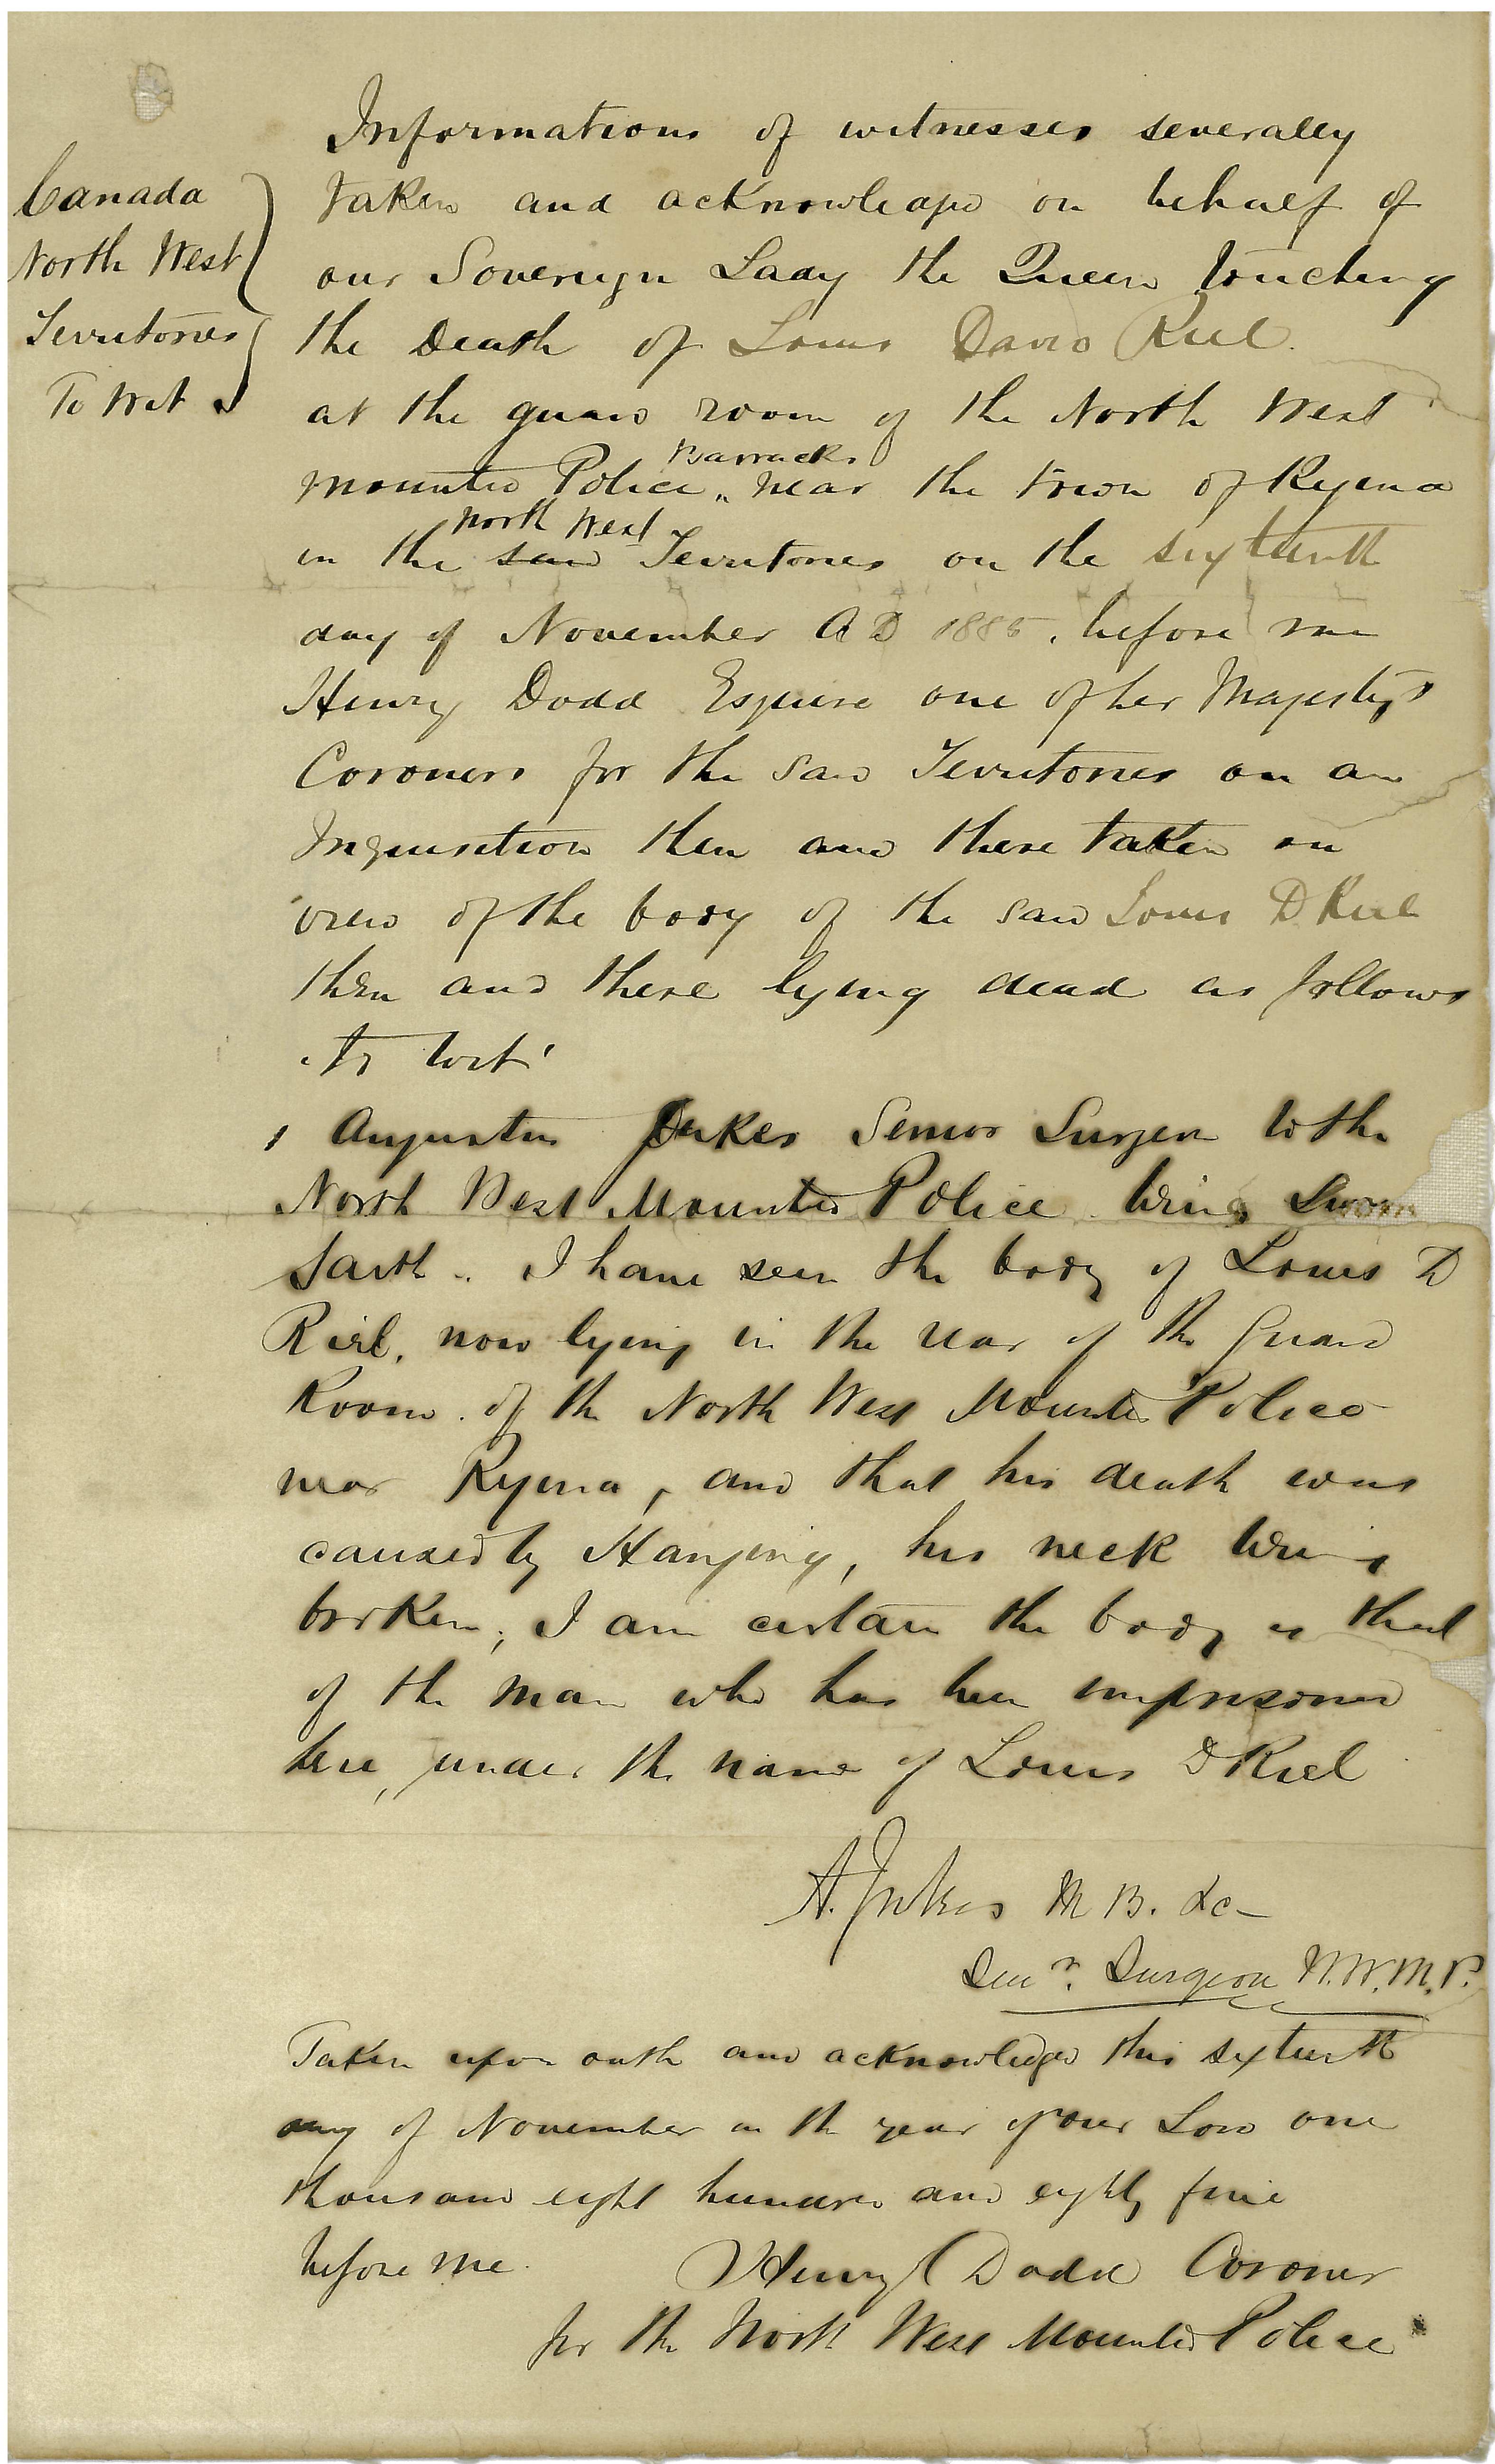 Canada
North West
Territories
To Wit
Informations of witnesses severally
taken and acknowledged on behalf of
our Sovereign Lady the Queen touching
the Death of Louis David Riel.
at the guard room of the North West
Barracks
Mounted Police " near the town of Regina
North West
in the said Territories on the sixteenth
day of November AD 1885. before me
Henry Dodd Esquire one of her Majesty's
Coroners for the said Territories on an
Inquisition then and there taken on
view of the body of the said Louis D Riel
then and there lying dead as follows
to wit
1 Augustus Jukes Senior Surgeon to the
North West Mounted Police being Sworn
Saith .. I have seen the body of Louis D
Riel, now lying in the rear of the Guard
Room of the North West Mounted Police
near Regina, and that his death was
caused by Hanging, his neck being
broken; I am certain the body is that
of the man who has been imprisoned
here, under the name of Louis D Riel
A. Jukes M B. &c -
Senr. Surgeon N.W.M.P.
Taken upon oath and acknowledged this sixteenth
day of November in the year of our Lord one
thousand eight hundred and eighty five
before me.
Henry Dodd Coroner
for the North West Mounted Police